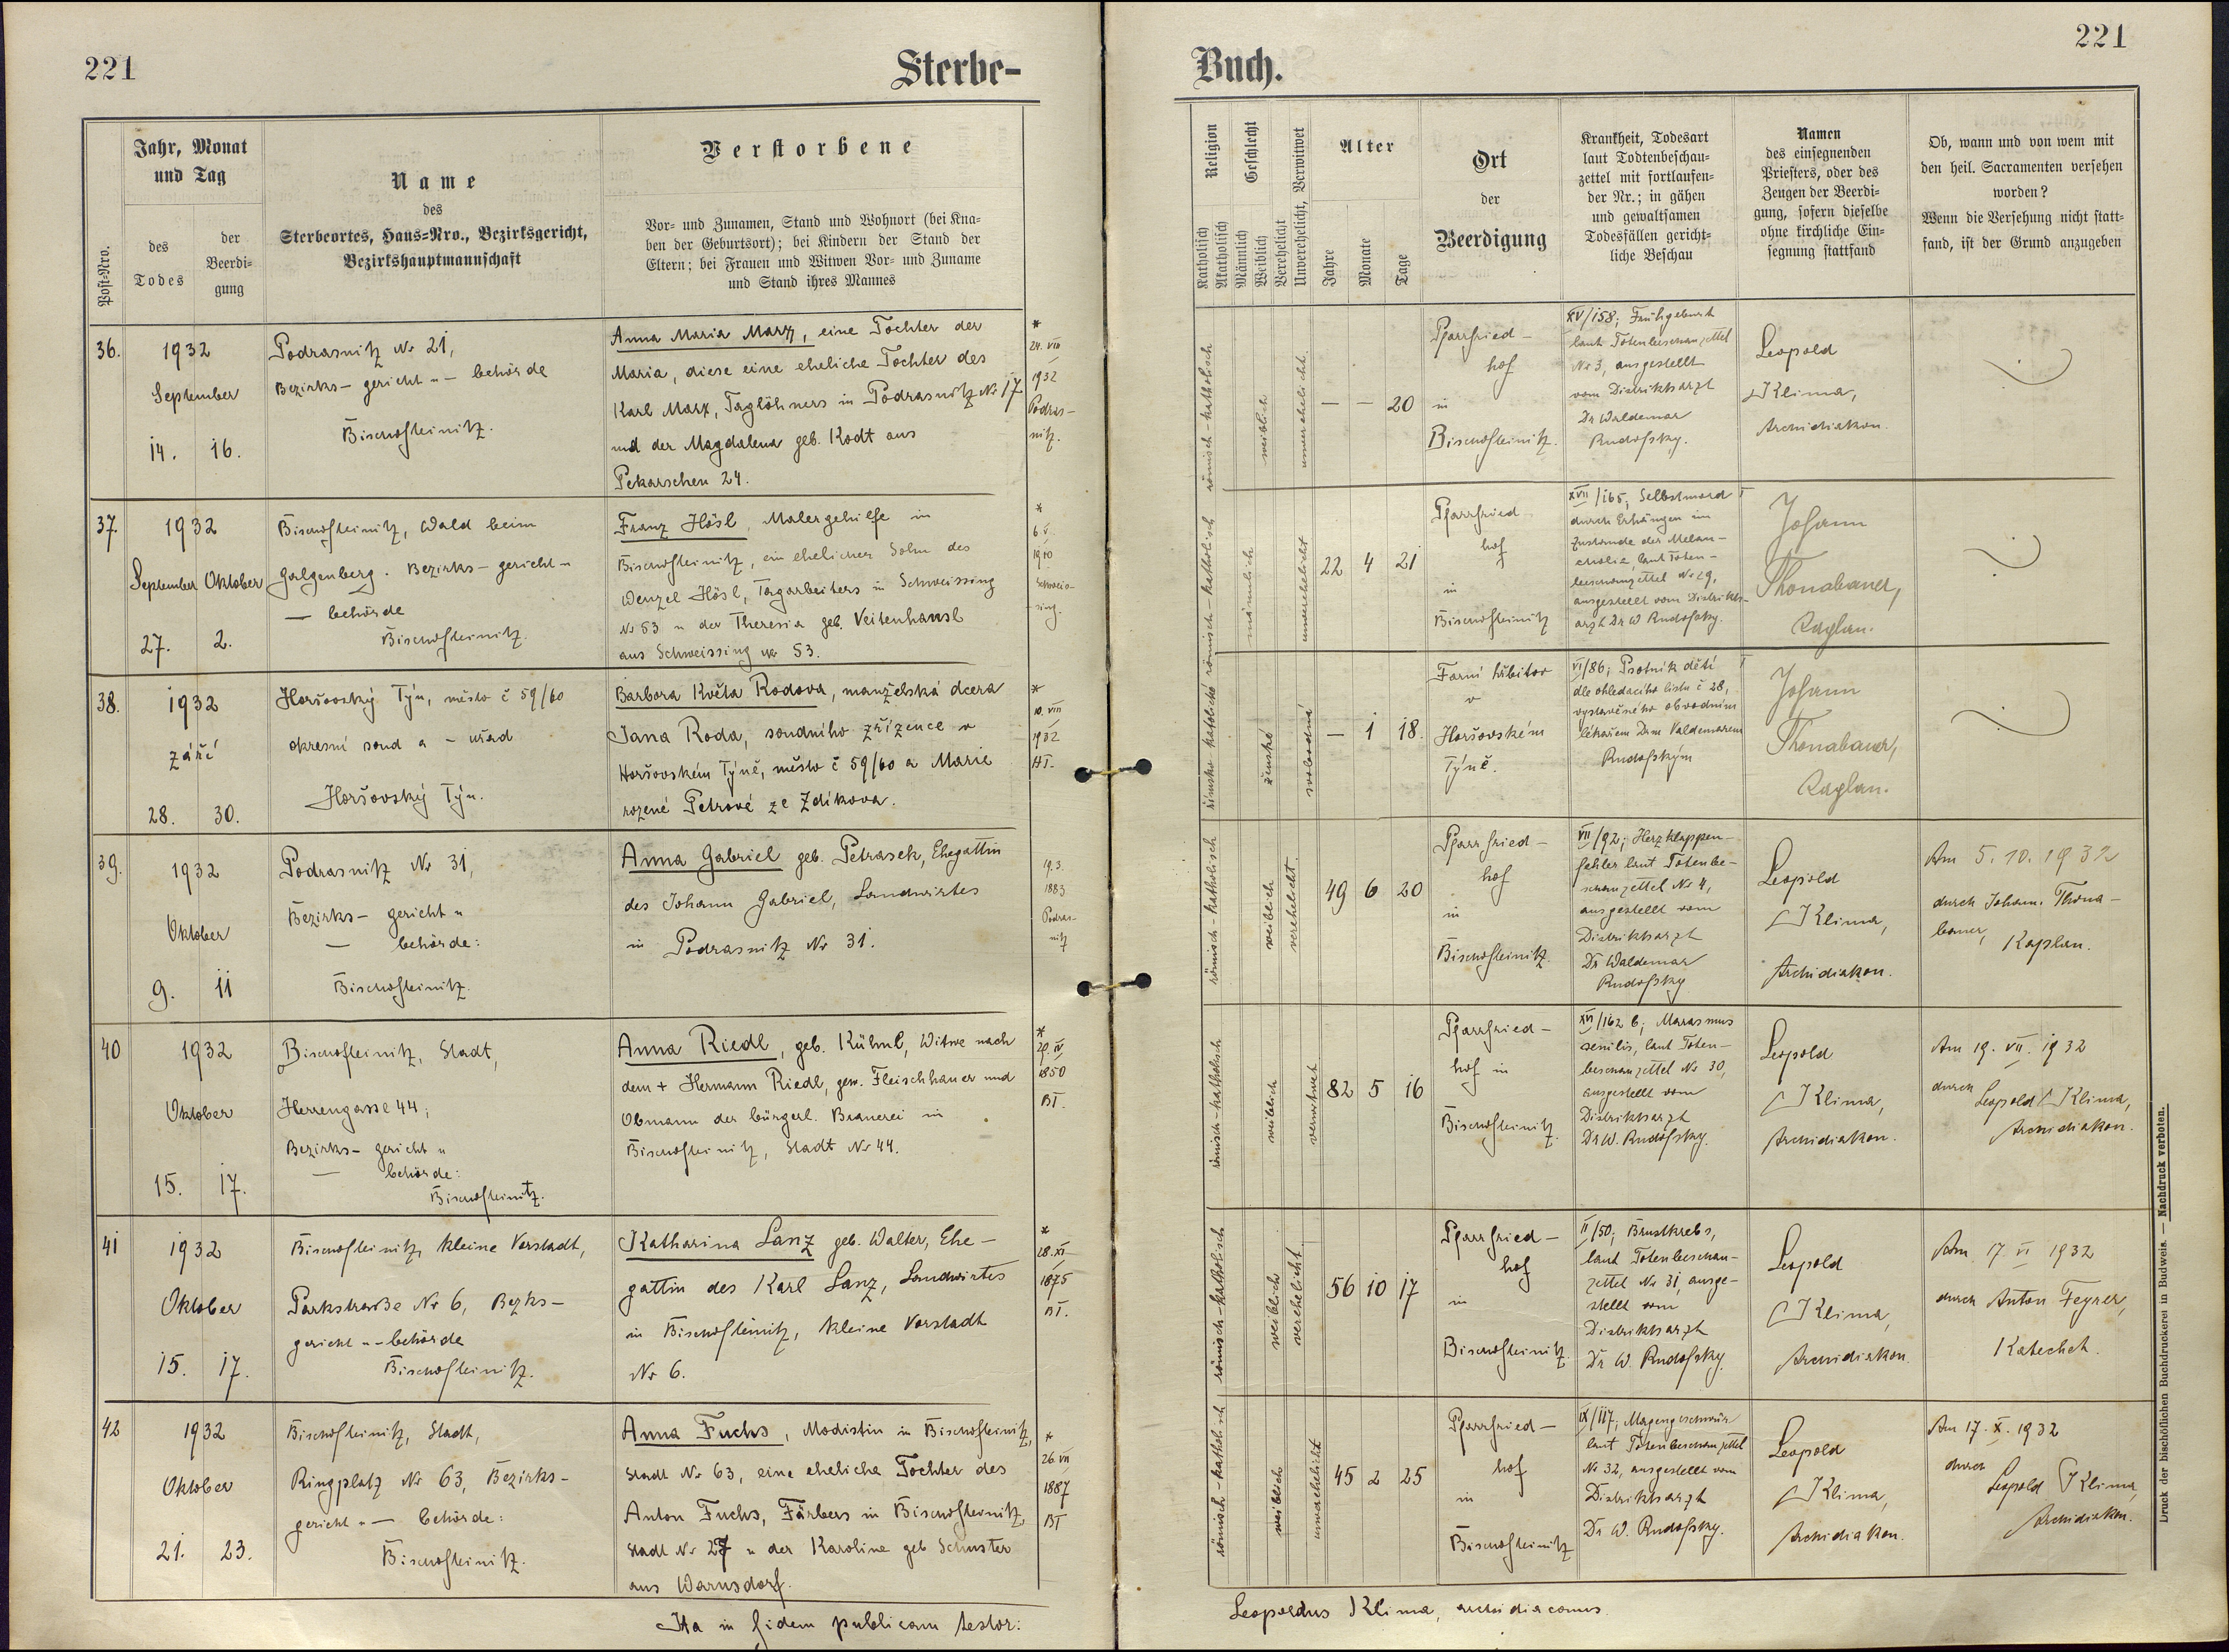 221
Sterbe-
Post-Nro.
Jahr, Monat
und Tag
des
Todes
der
Beerdi-
gung
Name
des
Sterbeortes, Haus-Nro., Bezirksgericht,
Bezirkshauptmannschaft
Verstorbene
Vor- und Zunamen, Stand und Wohnort (bei Kna-
ben der Geburtsort); bei Kindern der Stand der
Eltern; bei Frauen und Witwen Vor- und Zuname
und Stand ihres Mannes
36.
1932
September
14. 16.
Podrasnitz Nr 21,
Bezirks- gericht u - behörde
Bischofteinitz.
Anna Maria Marx, eine Tochter der
Maria, diese eine eheliche Tochter des
Karl Marx, Taglöhners in Podrasnitz Nr 17
und der Magdalena geb. Kodt aus
Pekarschen 24.
*
24. VIII
1932
Podras-
nitz.
37.
1932
September Oktober
27. 2.
Bischofteinitz, Wald beim
Galgenberg. Bezirks- gericht u
- behörde
Bischofteinitz.
Franz Hösl, Malergehilfe in
Bischofteinitz, ein ehelicher Sohn des
Wenzel Hösl, Tagarbeiters in Schweissing
Nr 53 u der Theresia geb. Veitenhansl
aus Schweissing Nr 53.
*
6. V.
1910
Schweis-
sing.
38.
1932
září
28. 30.
Horšovský Týn, město č 59/60
okresní soud a - úřad
Horšovský Týn.
Barbora Květa Rodova, manželská dcera
Jana Roda, soudního zřízence v
Horšovském Týně, město č 59/60 a Marie
rozené Petrové ze Zdíkova.
*
10. VIII
1932
HT.
39.
1932
Oktober
9. 11
Podrasnitz Nr 31,
Bezirks- gericht u
- behörde:
Bischofteinitz.
Anna Gabriel geb. Petrasek, Ehegattin
des Johann Gabriel, Landwirtes
in Podrasnitz Nr 31.
19.3.
1883
Podras-
nitz
40
1932
Oktober
15. 17.
Bischofteinitz, Stadt,
Herrengasse 44;
Bezirks- gericht u
- behörde:
Bischofteinitz.
Anna Riedl, geb. Kühnl, Witwe nach
dem + Hermann Riedl, gew. Fleischhauer und
Obmann der bürgerl. Brauerei in
Bischofteinitz, Stadt Nr 44.
*
29. IV
1850
BT.
41
1932
Oktober
15. 17.
Bischofteinitz, kleine Vorstadt,
Parkstraße Nr 6, Bezks-
gericht u - behörde
Bischofteinitz.
Katharina Lanz geb. Walter, Ehe-
gattin des Karl Lanz, Landwirtes
in Bischofteinitz, kleine Vorstadt
Nr 6.
*
28. XI
1875
BT.
42
1932
Oktober
21. 23.
Bischofteinitz, Stadt,
Ringplatz Nr 63, Bezirks-
gericht u - behörde:
Bischofteinitz.
Anna Fuchs, Modistin in Bischofteinitz,
Stadt Nr 63, eine eheliche Tochter des
Anton Fuchs, Färbers in Bischofteinitz,
Stadt Nr 27 u der Karoline geb Schuster
aus Warnsdorf.
*
26. VII
1887
BT
Ita in fidem publicam testor:
221
Buch.
Religion
Katholisch
Akatholisch
Geschlecht
Männlich
Weiblich
Verehelicht
Unverehelicht, Verwitwet
Alter
Jahre
Monate
Tage
Ort
der
Beerdigung
Krankheit, Todesart
laut Todtenbeschau-
zettel mit fortlaufen-
der Nr.; in gähen
und gewaltsamen
Todesfällen gericht-
liche Beschau
Namen
des einsegnenden
Priesters, oder des
Zeugen der Beerdi-
gung, sofern dieselbe
ohne kirchliche Ein-
segnung stattfand
Ob, wann und von wem mit
den heil. Sacramenten versehen
worden?
Wenn die Versehung nicht statt-
fand, ist der Grund anzugeben
römisch-katholisch
weiblich
unverehelicht
- - 20
Pfarrfried-
hof
in
Bischofteinitz.
XV/158; Frühgeburt
laut Totenbeschauzettel
Nr 3, ausgestellt
vom Distriktsarzt
Dr Waldemar
Rudofsky.
Leopold
Klima,
Archidiakon.
römisch-katholisch
männlich
unverehelicht
22 4 21
Pfarrfried
hof
in
Bischofteinitz
XVII/165; Selbstmord
durch Erhängen im
Zustande der Melan-
cholie, laut Toten-
beschauzettel Nr 29,
ausgestellt vom Distrikts-
arzt Dr W Rudofsky.
Johann
Thonabauer,
Kaplan.
římsko katolické
ženské
svobodná
- 1 18.
Farní hřbitov
v
Horšovském
Týně.
VI/86; Psotník dětí
dle ohledacího listu č 28,
vystaveného obvodním
lékařem Drem Valdemarem
Rudofským
Johann
Thonabauer,
Kaplan.
römisch-katholisch
weiblich
verehelicht
49 6 20
Pfarrfried-
hof
in
Bischofteinitz.
VII/92; Herzklappen-
fehler laut Totenbe-
schauzettel Nr 4,
ausgestellt vom
Distriktsarzt
Dr Waldemar
Rudofsky
Leopold
Klima,
Archidiakon.
Am 5. 10. 1932
durch Johann Thona-
bauer,
Kaplan.
römisch-katholisch
weiblich
verwitwet
82 5 16
Pfarrfried-
hof in
Bischofteinitz.
XVI/162 b; Marasmus
senilis, laut Toten-
beschauzettel Nr 30,
ausgestellt vom
Distriktsarzt
Dr W. Rudofsky.
Leopold
Klima,
Archidiakon.
Am 19. VII. 1932
durch
Leopold Klima,
Archidiakon.
römisch-katholisch
weiblich
verehelicht
56 10 17
Pfarrfried-
hof
in
Bischofteinitz.
II/50; Brustkrebs,
laut Totenbeschau-
zettel Nr 31, ausge-
stellt vom
Distriktsarzt
Dr W. Rudofsky.
Leopold
Klima,
Archidiakon.
Am 17. VI 1932
durch Anton Feyrer,
Katechet.
römisch-kathol isch
weiblich
unverehelicht
45 2 25
Pfarrfried-
hof
in
Bischofteinitz
IX/117; Magengeschwür
laut Totenbeschauzettel
Nr 32, ausgestellt vom
Distriktsarzt
Dr W. Rudofsky.
Leopold
Klima,
Archidiakon.
Am 17. X. 1932
durch
Leopold Klima,
Archidiakon.
Leopoldus Klima, archidiaconus.
Druck der bischöflichen Buchdruckerei in Budweis. — Nachdruck verboten.